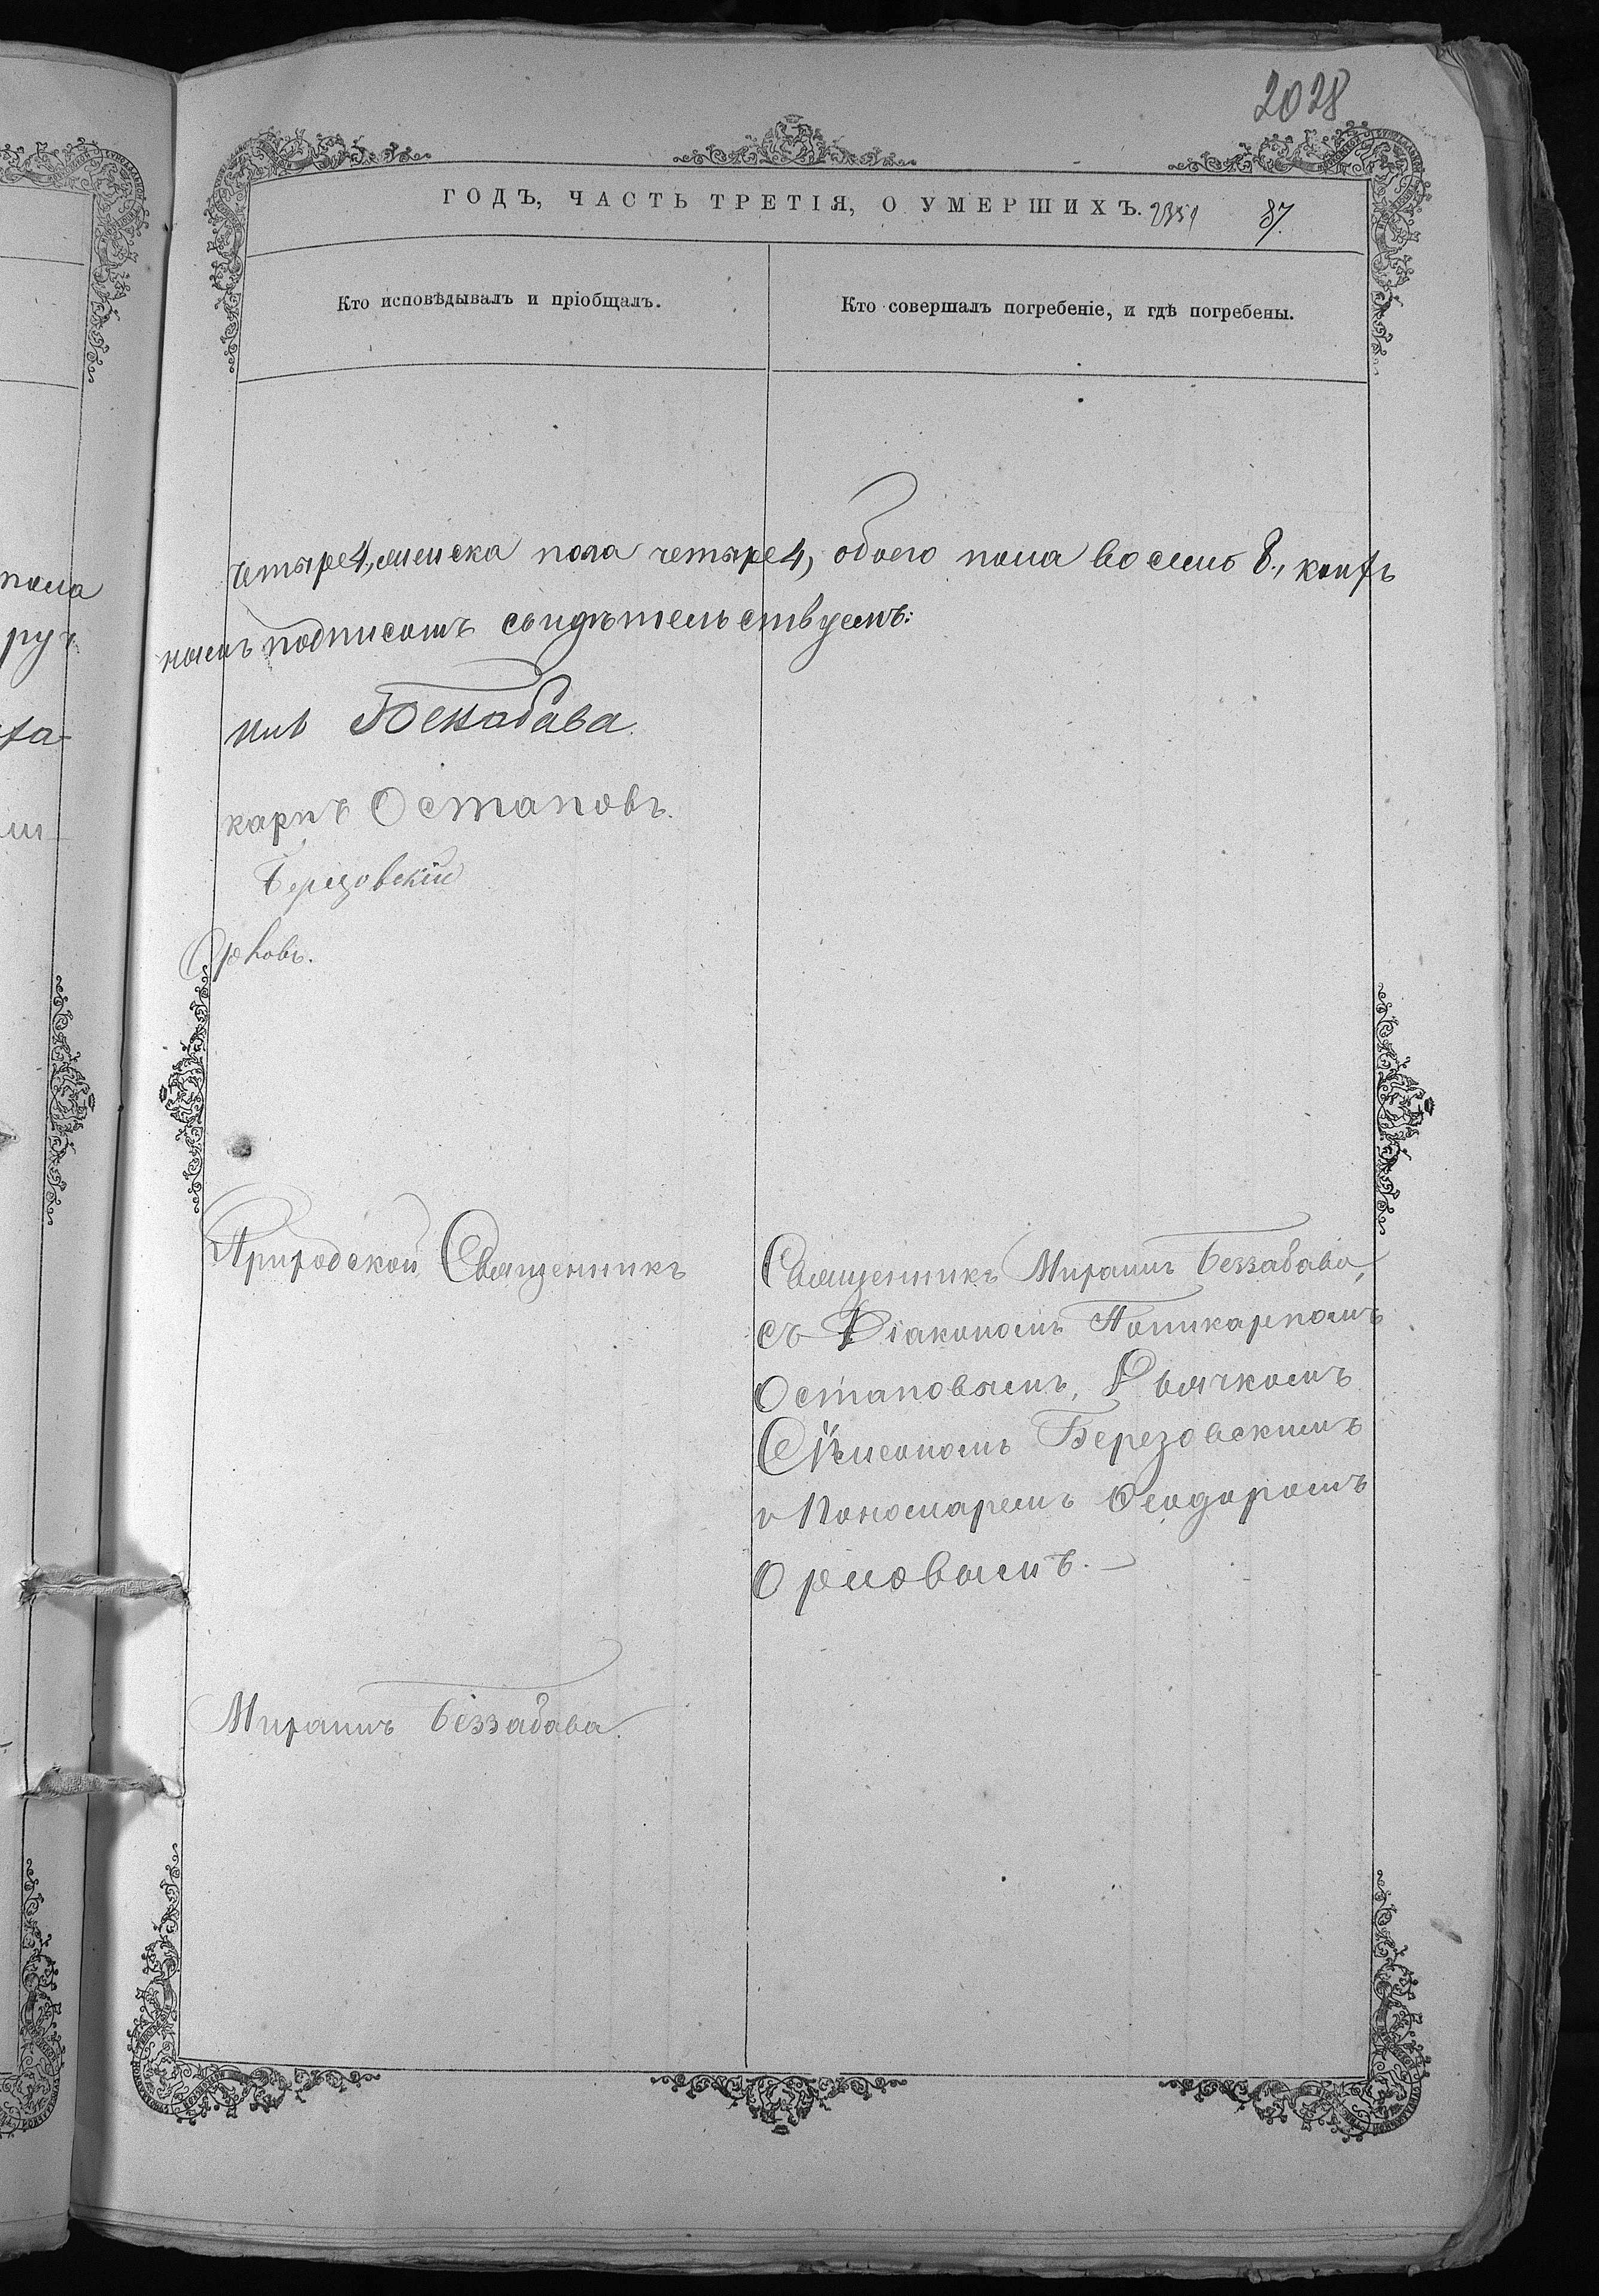 2028
ГОДЪ, ЧАСТЬ ТРЕТІЯ, О УМЕРШИХЪ. 2351 87.
Кто исповѣдывалъ и пріобщалъ.
Кто совершалъ погребеніе, и гдѣ погребены.
пола
руч
четыре 4, женска пола четыре 4, обоего пола восемь 8,
подписомъ свидѣтельствуемъ:
нъ Беззабава.
карпъ Остаповъ.
Березовскій
Орловъ.
Приходской Священникъ
Священникъ Миронъ Беззабава,
съ Діакономъ Поликарпомъ
Остаповымъ, Дьячкомъ
Березовскимъ
и Пономаремъ Ѳеодоромъ
Орловымъ. —
Миронъ Беззабава.